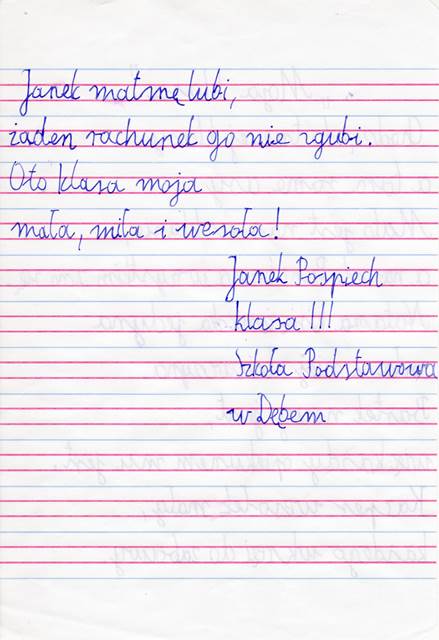 Janek matmę lubi,
żaden rachunek go nie zgubi.
Oto klasa moja
mała, miła i wesoła!
Janek Pospiech
klasa III
Szkoła Podstawowa
w Dębem